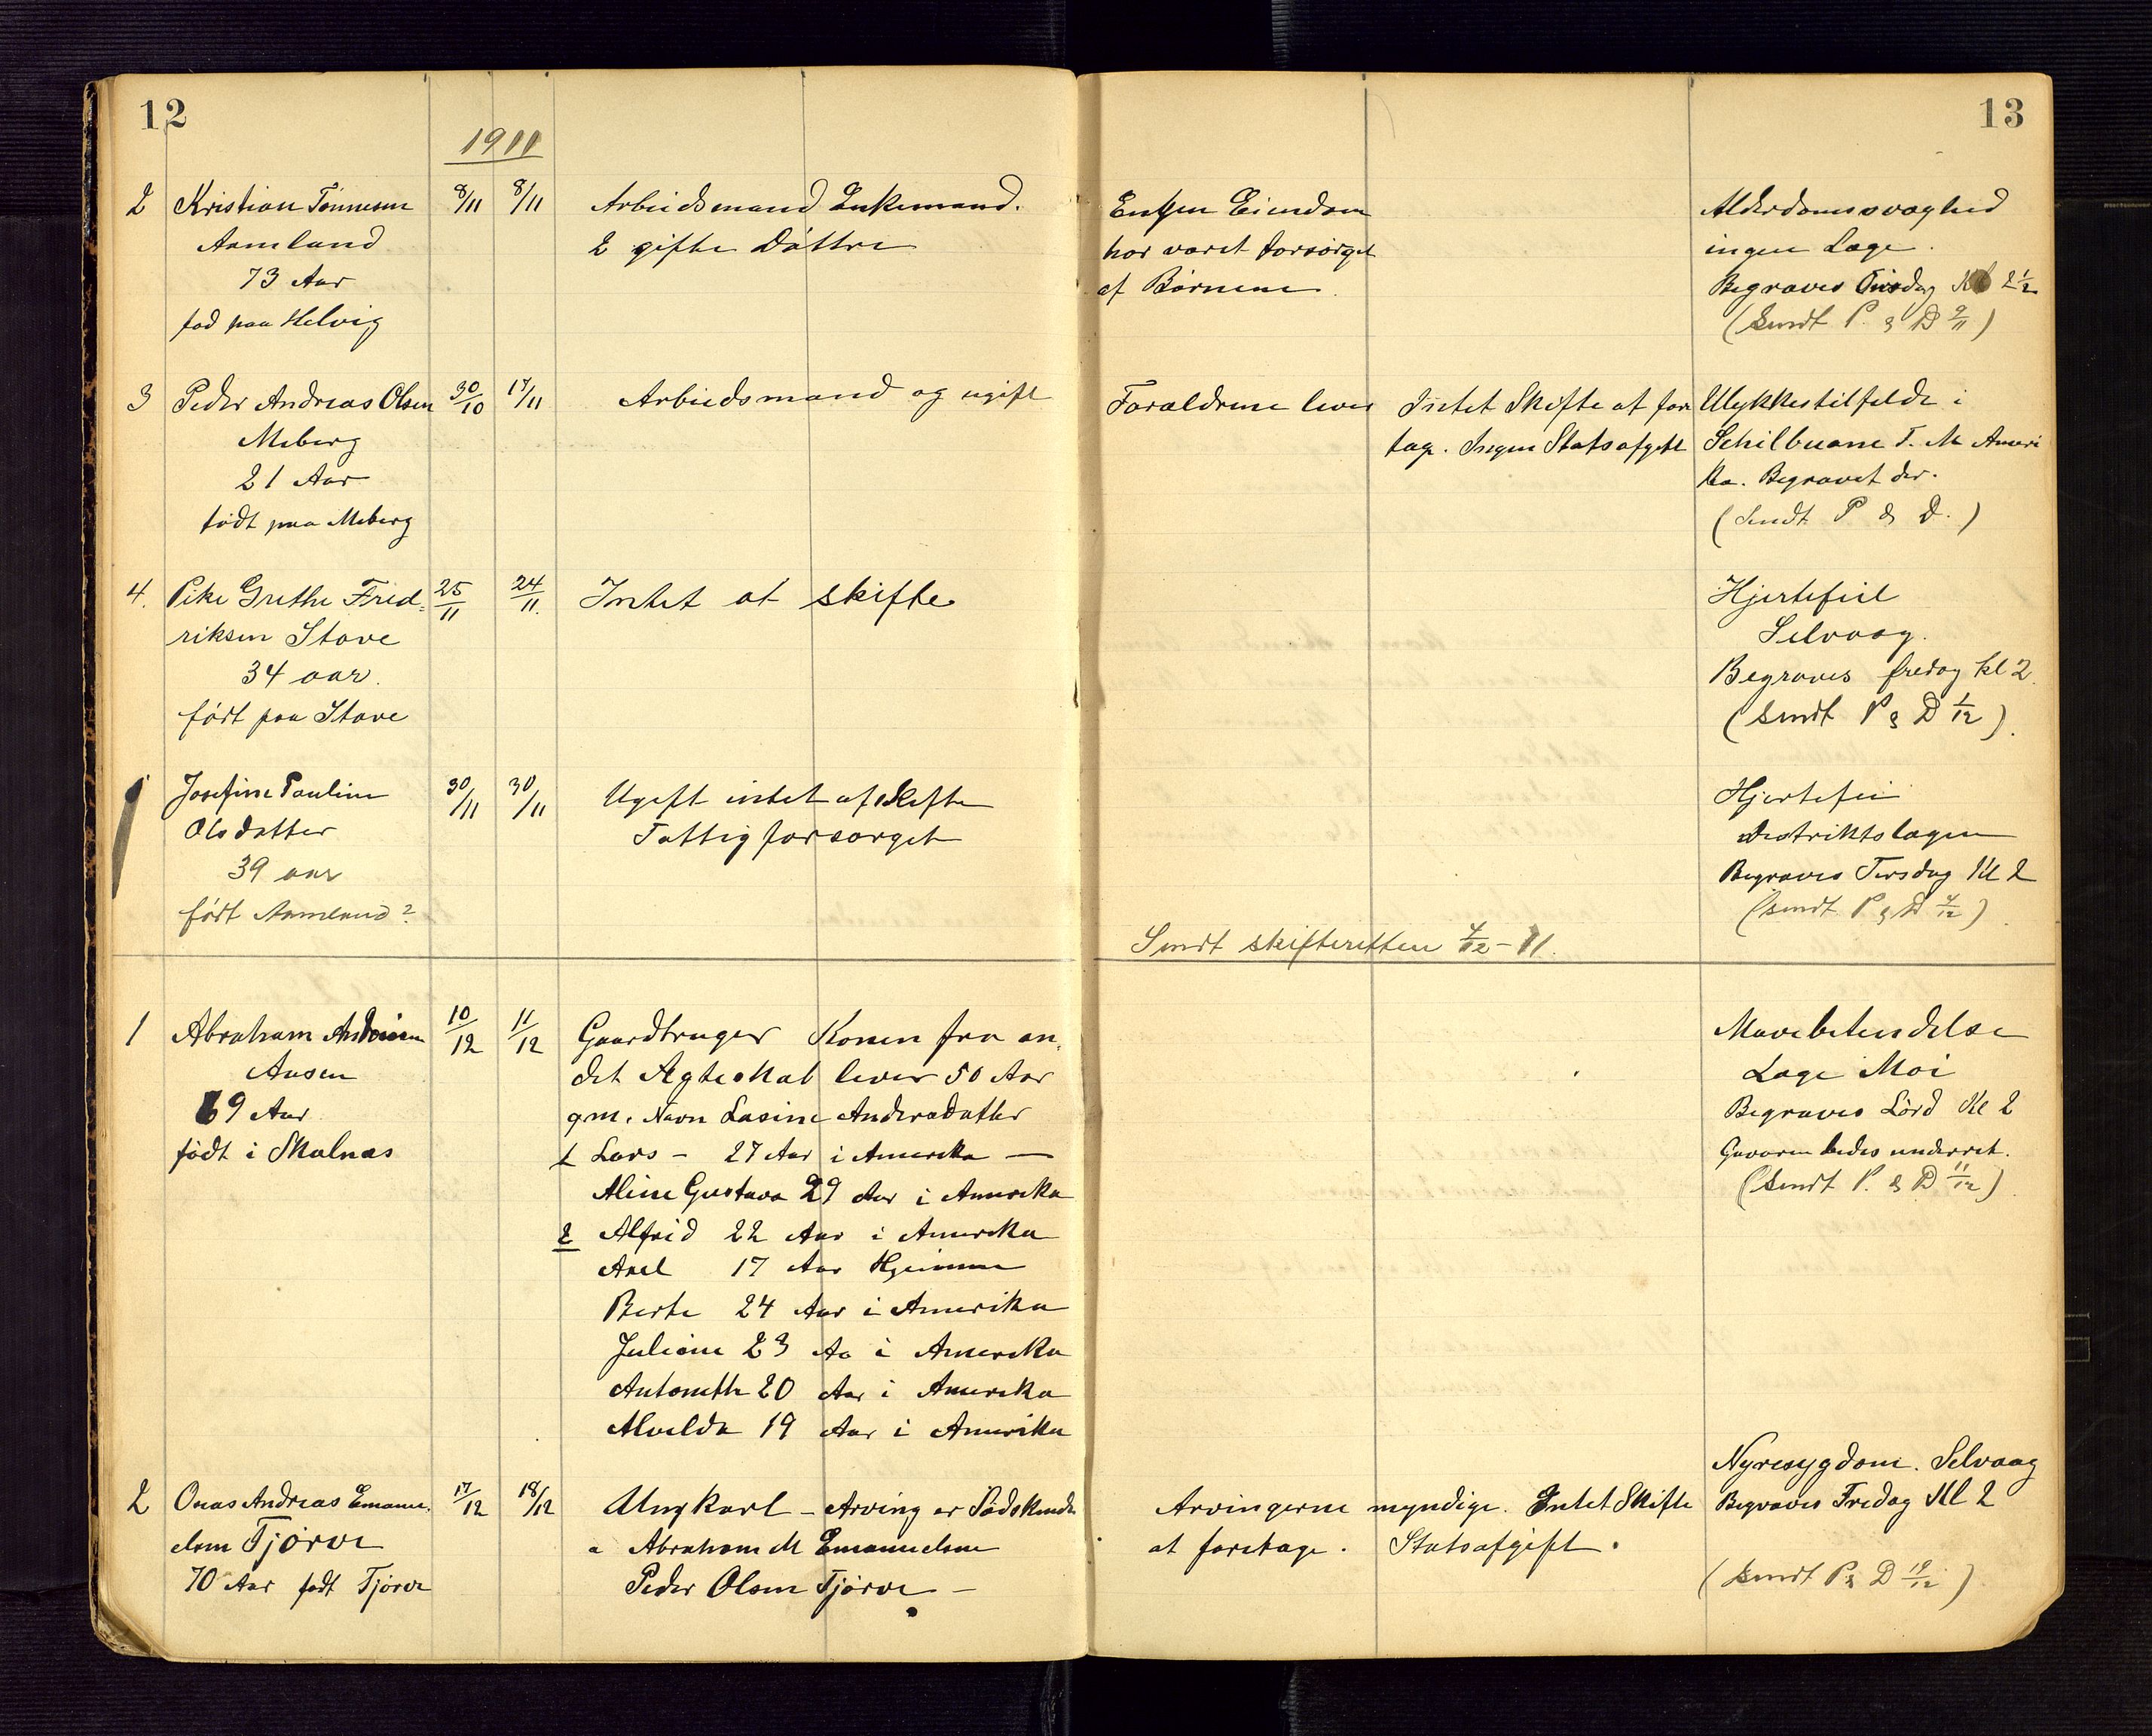 12
13
1911
2 Kristian Tønnesen 8/11 8/11 Arbeidsmand Enkemand. Eingen Eiendom Alderdomssvaghed
Aamland 2 gifte Døttre har været forsørget ingen Læge.
73 Aar af Børnene Begraves Tirsdag Kl 2 1/2
fød paa Helvig (Sendt P. & D 9/11)
3 Peder Andreas Olsen 30/10 17/11 Arbeidsmand og ugift Forældrene lever Intet Skifte at fore Ulykkestilfelde i
Meberg tage. Ingen Statsafgift T. M Ameri
21 Aar ka. Begravet der.
født paa Meberg (Sendt P & D.)
4. Pike Grethe Fred- 25/11 24/11. Intet at skifte Hjertefeil
riksen Stave Selvaag.
34 aar. Begraves fredag kl 2.
født paa Stave (Sendt P & D 1/12).
Josefine Pauline 30/11 30/11 Ugift intet at skifte Hjertefei
Olsdatter Fattigforsørget Distriktslægen
39 aar Begraves Tirsdag Kl 2
født Aamland? (Sendt P & D 4/12)
Sendt skifteretten 4/12-11.
1 Abraham Andersen 10/12 11/12 Gaardbruger Konen fra an- Mavebetendelse
Ausen det Ægteskab lever 50 Aar Læge Moi
69 Aar. gm. Navn Lasine Andersdatter Begraves Lørd Kl 2
født i Skalnæs 1 Lars - 27 Aar i Amerika — Gravaren bedes underret.
Aline Gustava 29 Aar i Amerika (Sendt P. & D 11/12)
2 Alfrid 22 Aar i Amerika
Axel 17 Aar Hjemme
Berte 24 Aar i Amerika
Juliane 23 Aa i Amerika
Antonette 20 Aar i Amerika
Alvilda 19 Aar i Amerika
Nyresygdom. Selvaag
2 Onas Andreas Emanu- 17/12 18/12 Ungkarl - Arving er Sødskende Arvingerne myndige. Entet Skifte Begraves Fredag Kl 2
elsen Tjørve a Abraham M Emanuelsen at foretage. Statsafgift.
70 Aar født Tjørve Peder Olsen Tjørve - (Sendt P & D 19/12)